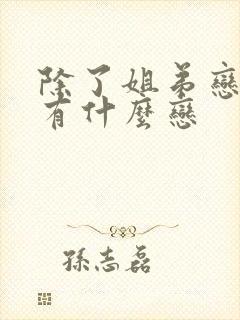 除了姐弟戀
有什麼戀
孫志磊